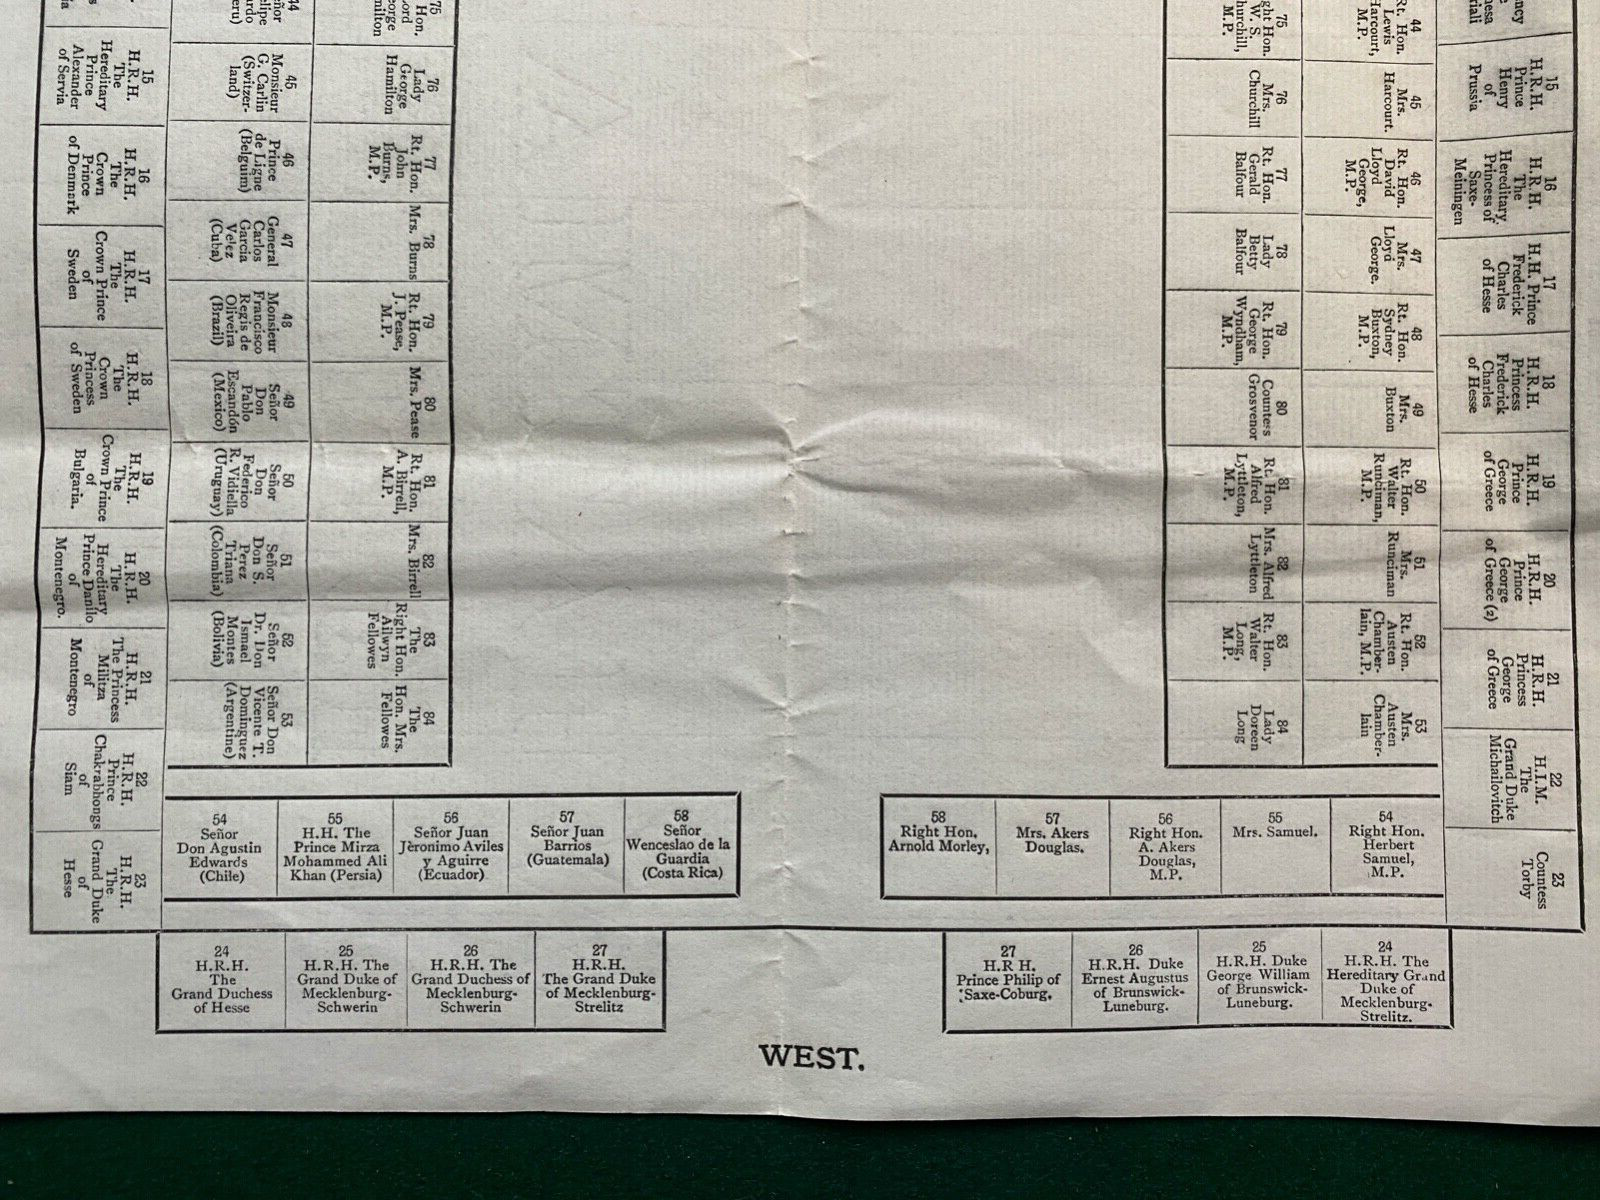 15
H.R.H.
The
Hereditary
Prince
Alexander
of Servia
16
H.R.H.
The
Crown
Prince
of Denmark
17
H.R.H.
The
Crown Prince
of
Sweden
18
H.R.H.
The
Crown
Princess
of Sweden
19
H.R.H.
The
Crown Prince
of
Bulgaria.
20
H.R.H.
The
Hereditary
Prince Danilo
of
Montenegro.
21
H.R.H.
The Princess
Militza
of
Montenegro
22
H.R.H.
Prince
Chakrabhongs
of
Siam
23
H.R.H.
The
Grand Duke
of
Hesse
44
45
Monsieur
G. Carlin
(Switzer-
land)
46
Prince
de Ligne
(Belguim)
47
General
Carlos
Garcia
Velez
(Cuba)
48
Monsieur
Francisco
Regis de
Oliveira
(Brazil)
49
Señor
Don
Pablo
Escandón
(Mexico)
50
Señor
Don
Federico
R. Vidiella
(Uruguay)
51
Señor
Don S.
Perez
Triana
(Colombia)
52
Señor
Dr. Don
Ismael
Montes
(Bolivia)
53
Señor Don
Vicente T.
Dominguez
(Argentine)
75
Hon.
76
Lady
George
Hamilton
77
Rt. Hon.
John
Burns,
M.P.
78
Mrs. Burns
79
Rt. Hon.
J. Pease,
M.P.
80
Mrs. Pease
81
Rt. Hon.
A. Birrell,
M.P.
82
Mrs. Birrell
83
The
Right Hon.
Ailwyn
Fellowes
84
The
Hon. Mrs.
Fellowes
75
Hon.
W. S.
M.P.
76
Mrs.
Churchill
77
Rt. Hon.
Gerald
Balfour
78
Lady
Betty
Balfour
79
Rt. Hon.
George
Wyndham,
M.P.
80
Countess
Grosvenor
81
Rt. Hon.
Alfred
Lyttleton,
M.P.
82
Mrs. Alfred
Lyttleton
83
Rt. Hon.
Walter
Long,
M.P.
84
Lady
Doreen
Long
44
Rt. Hon.
Lewis
Harcourt,
M.P.
45
Mrs.
Harcourt.
46
Rt. Hon.
David
Lloyd
George,
M.P.
47
Mrs.
Lloyd
George.
48
Rt. Hon.
Sydney
Buxton,
M.P.
49
Mrs.
Buxton
50
Rt. Hon.
Walter
Runciman,
M.P.
51
Mrs.
Runciman
52
Rt. Hon.
Austen
Chamber-
lain, M.P.
53
Mrs.
Austen
Chamber-
lain
15
H.R.H.
Prince
Henry
of
Prussia
16
H.R.H.
The
Hereditary
Princess of
Saxe-
Meiningen
17
H.H. Prince
Frederick
Charles
of Hesse
18
H.R.H.
Princess
Frederick
Charles
of Hesse
19
H.R.H.
Prince
George
of Greece
20
H.R.H.
Prince
George
of Greece (2)
21
H.R.H.
Princess
George
of Greece
22
H.I.M.
The
Grand Duke
Michailovitch
23
Countess
Torby
54
Señor
Don Agustin
Edwards
(Chile)
55
H.H. The
Prince Mirza
Mohammed Ali
Khan (Persia)
56
Señor Juan
Jèronimo Aviles
y Aguirre
(Ecuador)
57
Señor Juan
Barrios
(Guatemala)
58
Señor
Wenceslao de la
Guardia
(Costa Rica)
58
Right Hon.
Arnold Morley,
57
Mrs. Akers
Douglas.
56
Right Hon.
A. Akers
Douglas,
M.P.
55
Mrs. Samuel.
54
Right Hon.
Herbert
Samuel,
M.P.
24
H.R.H.
The
Grand Duchess
of Hesse
25
H.R.H. The
Grand Duke of
Mecklenburg-
Schwerin
26
H.R.H. The
Grand Duchess of
Mecklenburg-
Schwerin
27
H.R.H.
The Grand Duke
of Mecklenburg-
Strelitz
27
H.R H.
Prince Philip of
Saxe-Coburg.
26
H.R.H. Duke
Ernest Augustus
of Brunswick-
Luneburg.
25
H.R.H. Duke
George William
of Brunswick-
Luneburg.
24
H.R.H. The
Hereditary Grand
Duke of
Mecklenburg-
Strelitz.
WEST.